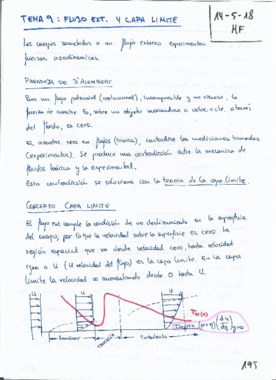 TEMA 9: FLUJO EXT. Y CAPA LIMITE
14-5-18
MF
Los cuerpos sometidos a un flujo externo experimentan
fuerzas aerodinamicas.
PARADOJA DE D'ALEMBERT
Para un flujo potencial (irrotacional), incompresible y no viscoso, la
fuerza de arrastre FD, sobre un objeto moviendose a veloc. = cte. a través
del fluido, es cero.
El arrastre cero en flujos (teorica), contradice las mediciones tomadas
(experimentos). Se produce una contradicción entre la mecanica de
fluidos teórica y la experimental.
Esta contradicción se soluciona con la teoría de la capa limite.
CONCEPTO CAPA LIMITE
El flujo no cumple la condición de no deslizamiento en la superficie
del cuerpo, por lo que la velocidad sobre la superficie es cero. La
región espacial que va donde velocidad cero, hasta velocidad
igual a U (U velocidad del flujo) es la capa limite. En la capa
limite la velocidad va aumentando desde 0 hasta U.
U U U U
Laminar
Transición
Turbulento
(du/dy) y=0
195